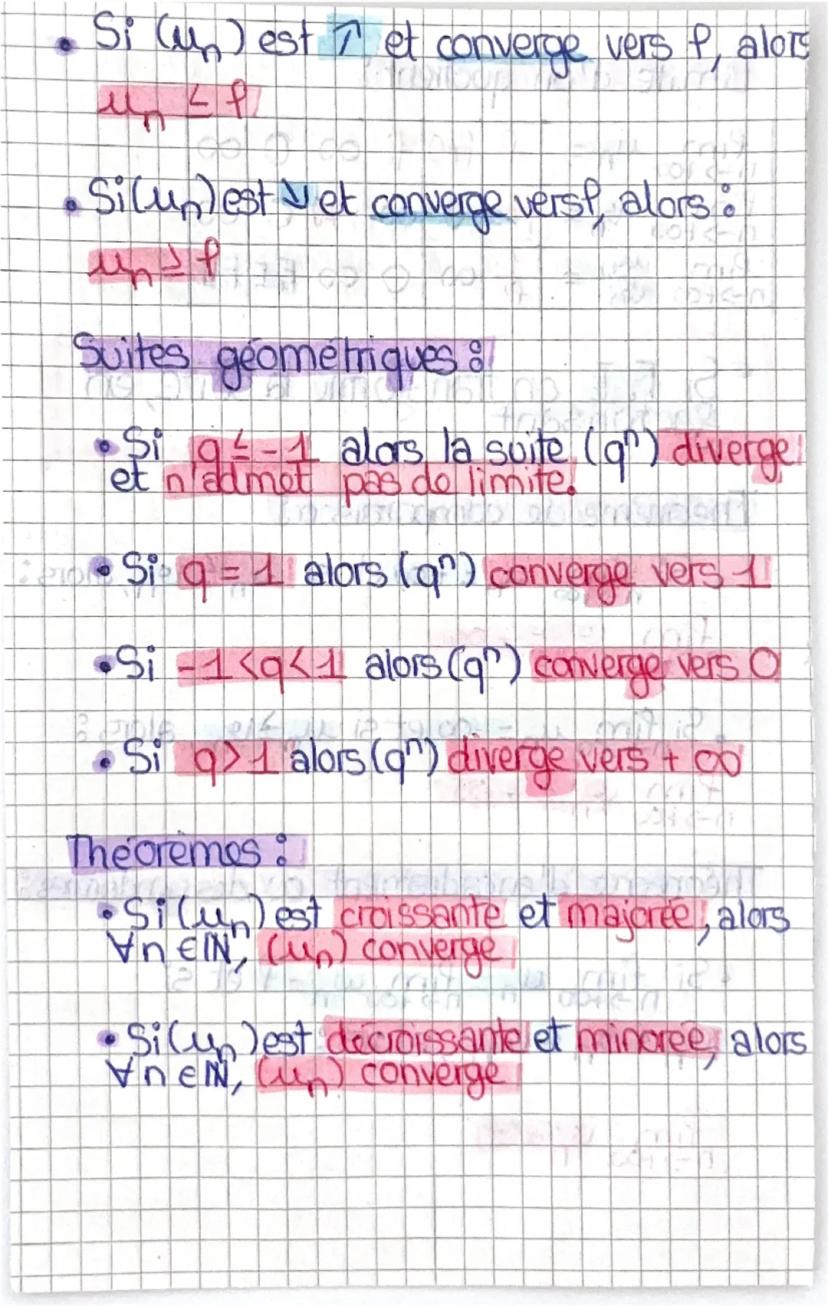 • Si (uₙ) est ↗ et converge vers ℓ, alors
uₙ ≤ ℓ
• Si (uₙ) est ↘ et converge vers ℓ, alors :
uₙ ≥ ℓ
Suites géométriques :
• Si q ≤ -1 alors la suite (qⁿ) diverge
et n'admet pas de limite.
• Si q = 1 alors (qⁿ) converge vers 1
• Si -1 < q < 1 alors (qⁿ) converge vers 0
• Si q > 1 alors (qⁿ) diverge vers + ∞
Théorèmes :
• Si (uₙ) est croissante et majorée, alors
∀n ∈ ℕ, (uₙ) converge
• Si (uₙ) est décroissante et minorée, alors
∀n ∈ ℕ, (uₙ) converge